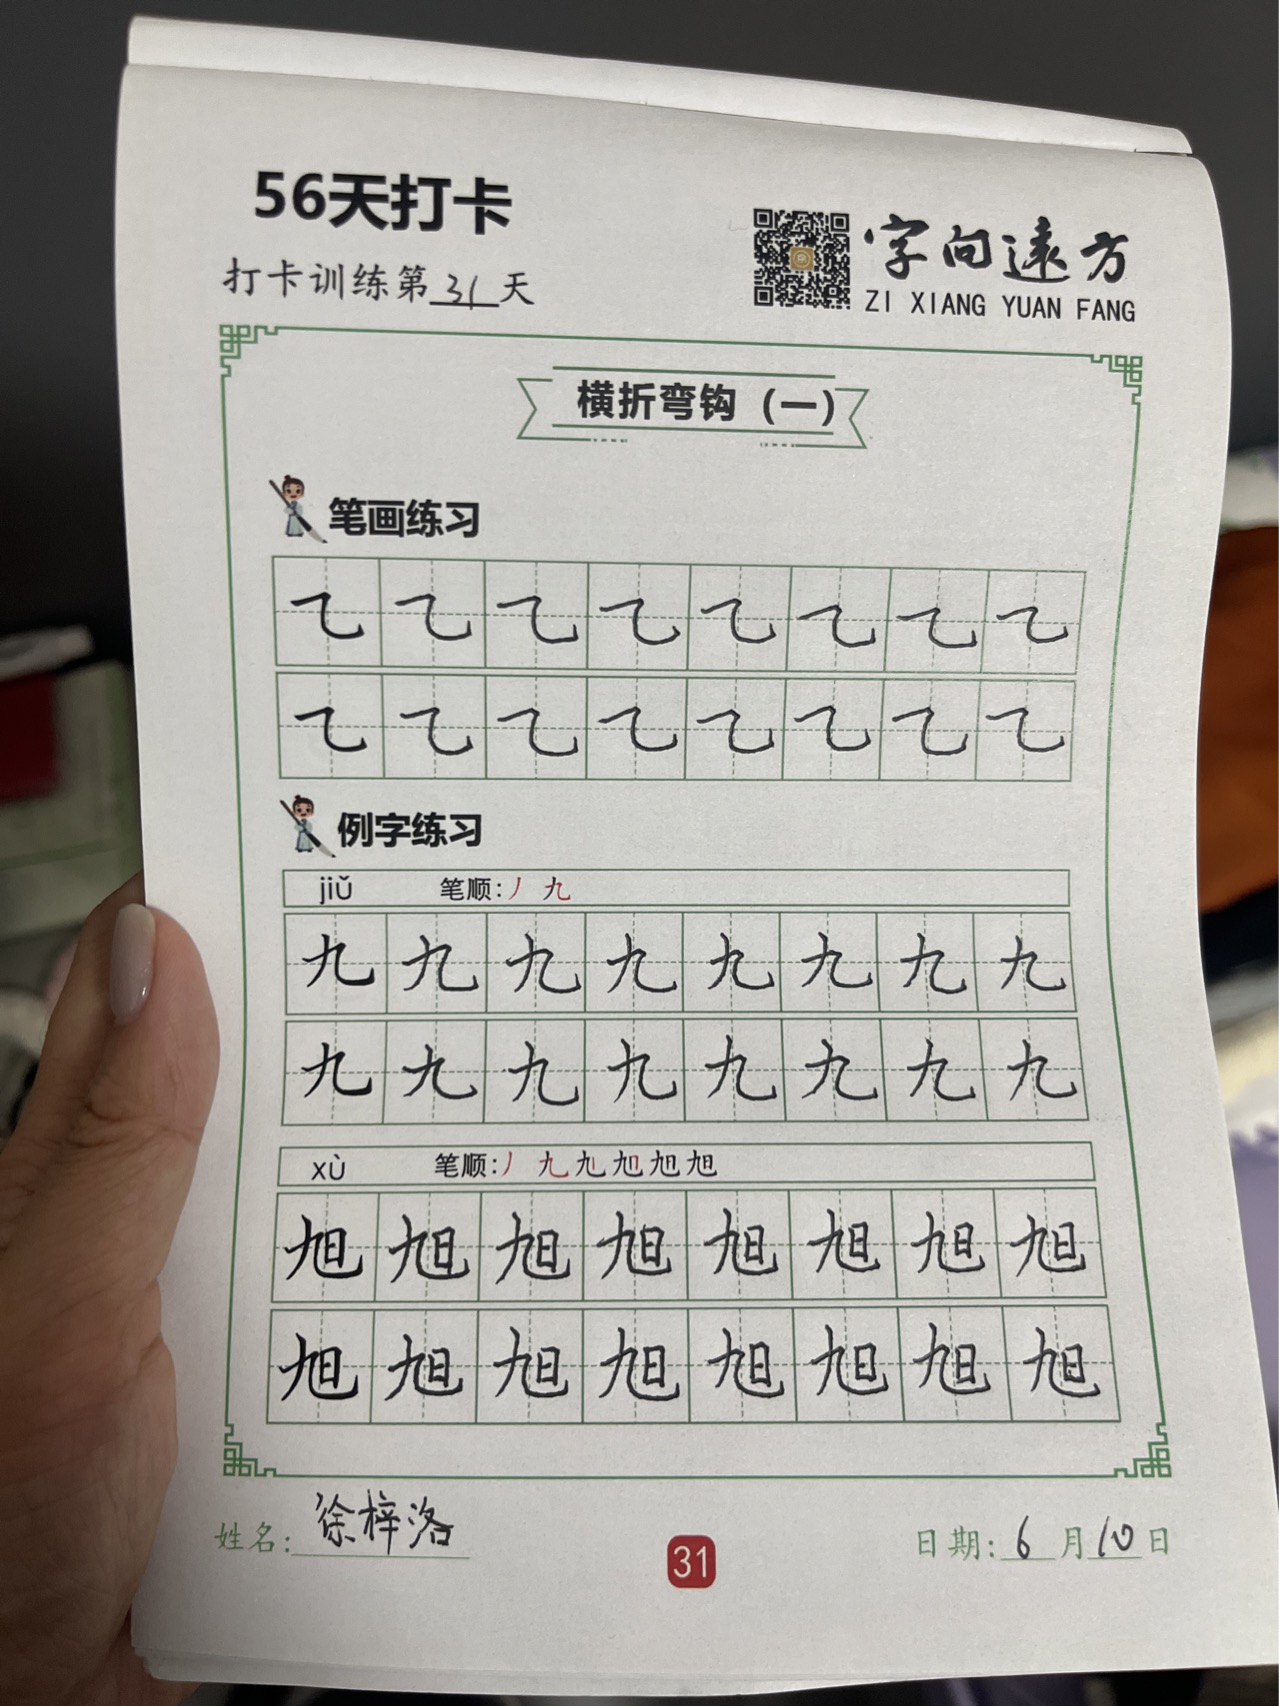 56天打卡
打卡训练第31天
字向遠方
ZI XIANG YUAN FANG
横折弯钩（一）
笔画练习
㇈ ㇈ ㇈ ㇈ ㇈ ㇈ ㇈ ㇈
㇈ ㇈ ㇈ ㇈ ㇈ ㇈ ㇈ ㇈
例字练习
jiǔ 笔顺:丿 九
九 九 九 九 九 九 九 九
九 九 九 九 九 九 九 九
xù 笔顺:丿 九 旭 旭 旭 旭
旭 旭 旭 旭 旭 旭 旭 旭
旭 旭 旭 旭 旭 旭 旭 旭
姓名:徐梓洛
31
日期:6月10日